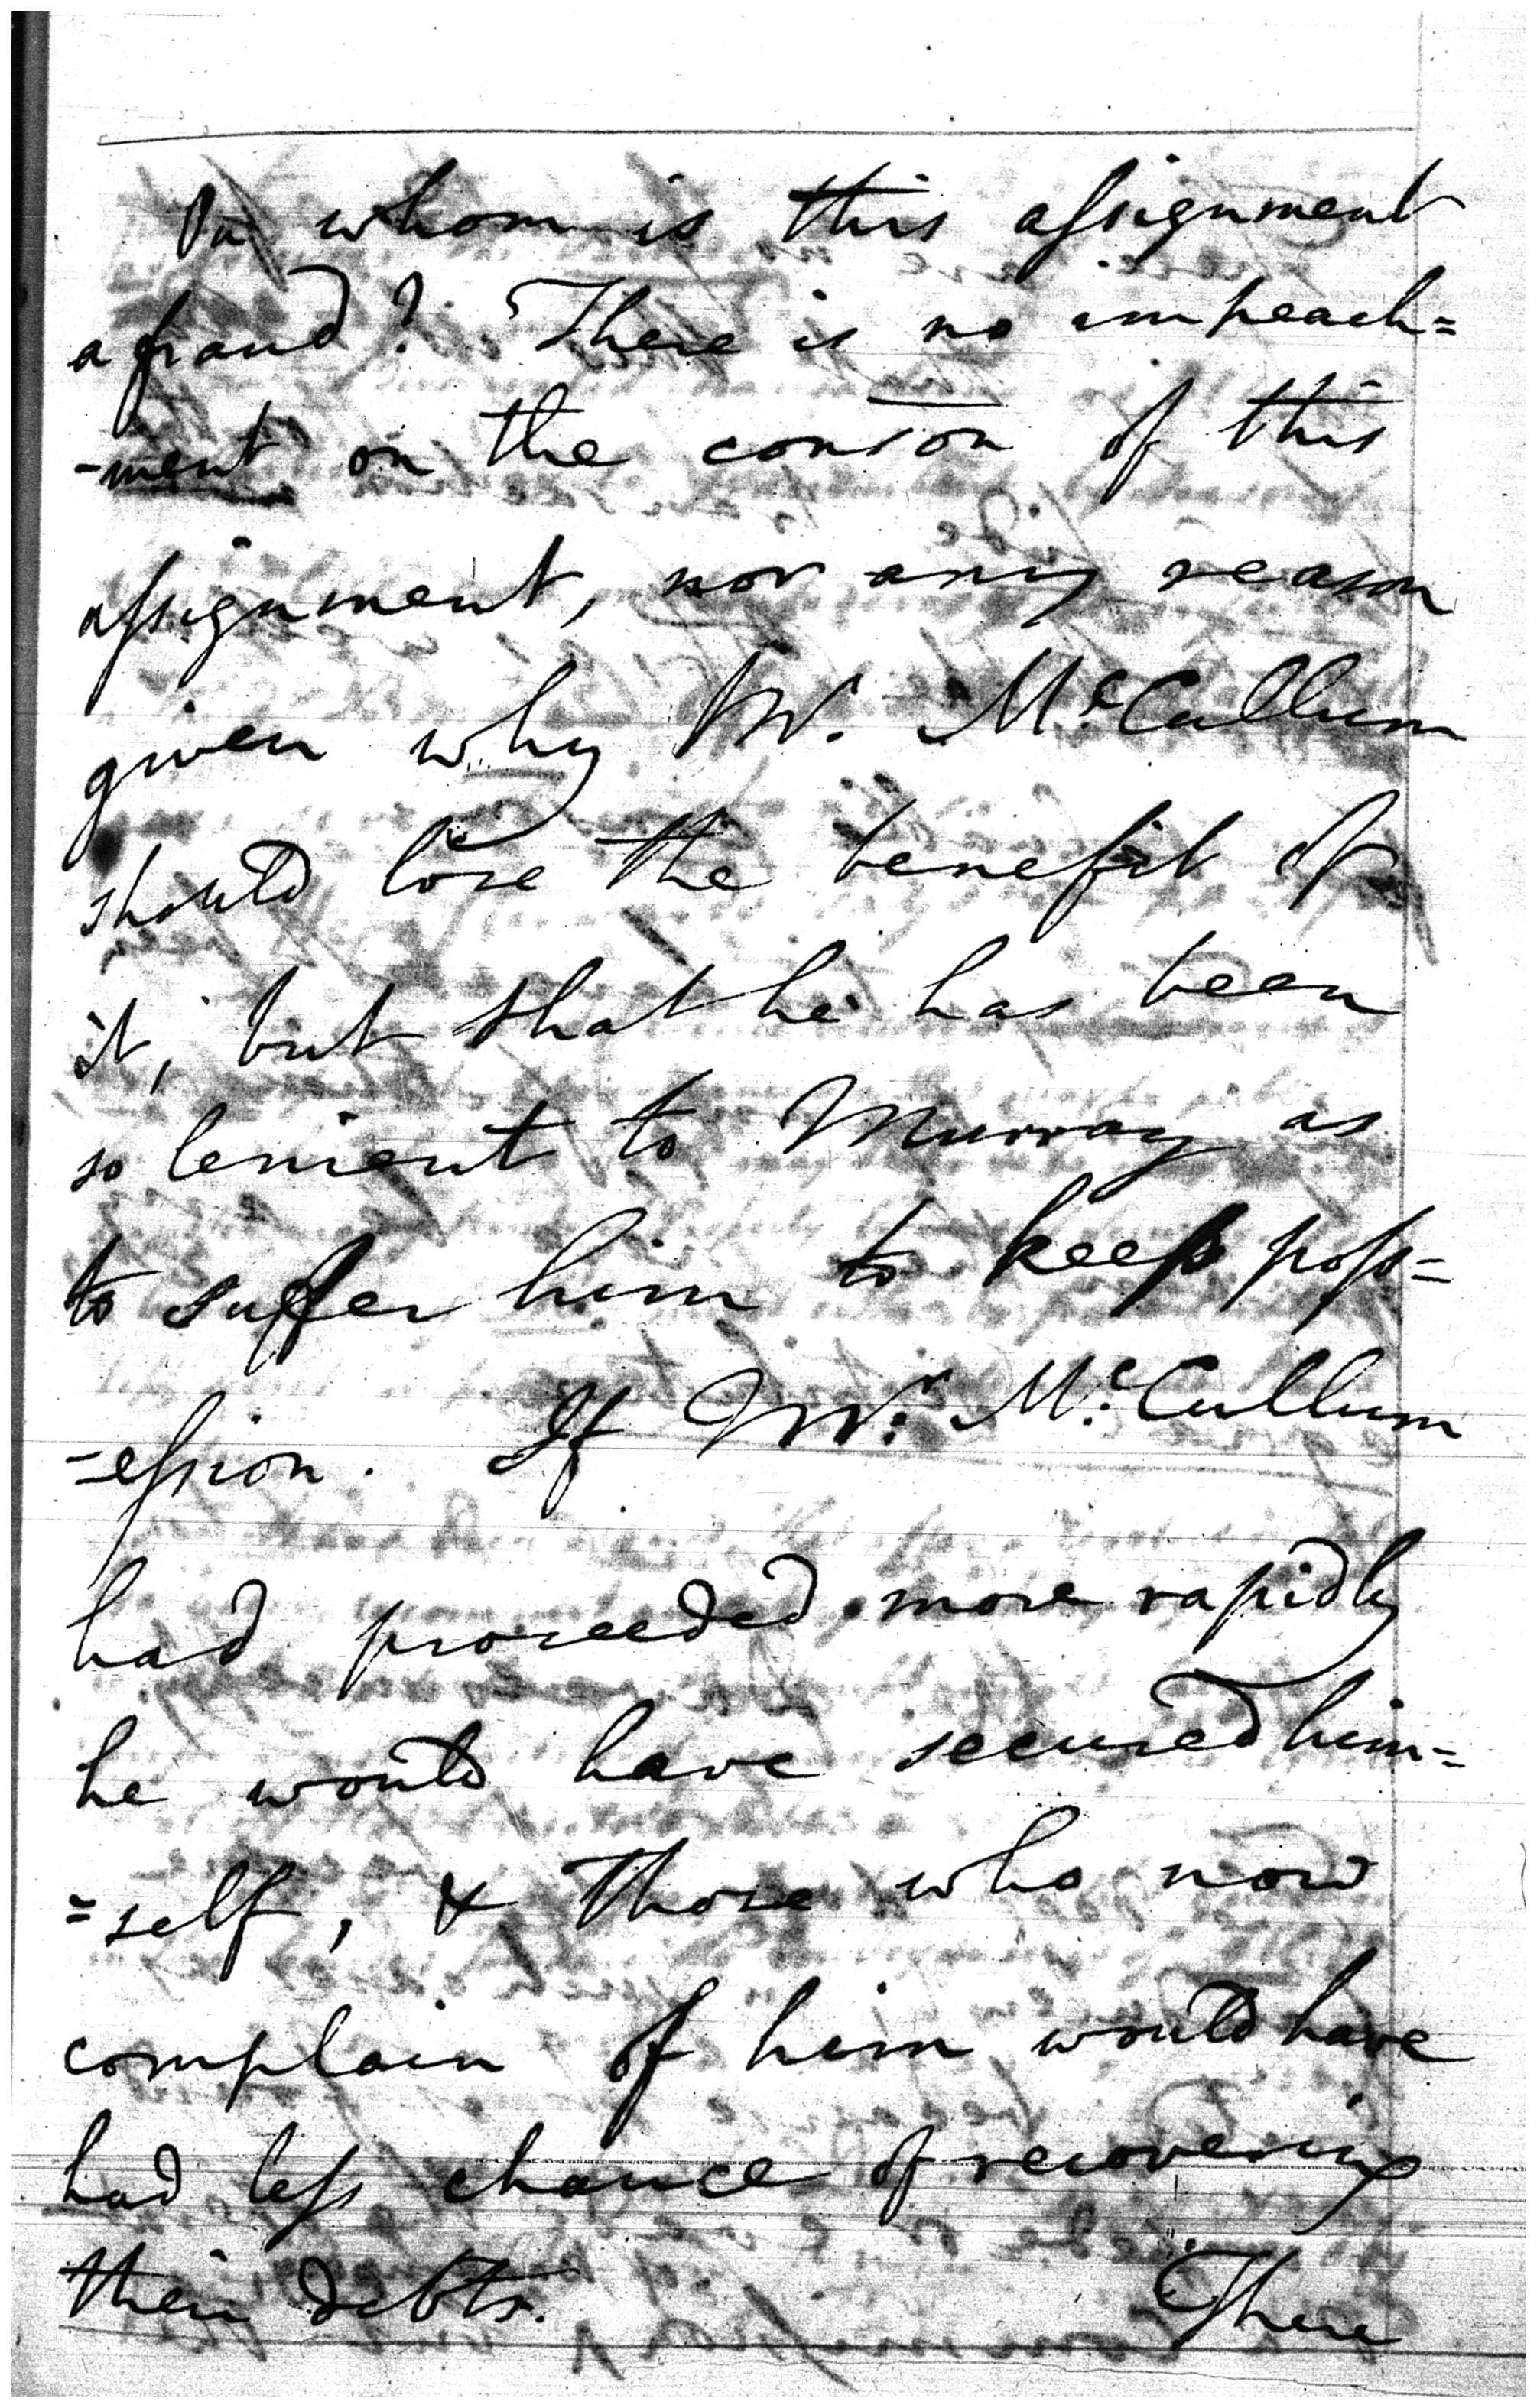 On whom is this assignment
a fraud? There is no impeach=
-ment on the conson of this
assignment, nor any reason
given why Mr. McCullum
should lose the benefit of
it, but that he has been
so lenient to Murray as
to suffer him to keep poss=
-ession. If Mr. McCullum
had proceeded more rapidly
he would have secured him=
=self, & those who now
complain of him would have
had less chance of recovering
their debts. There